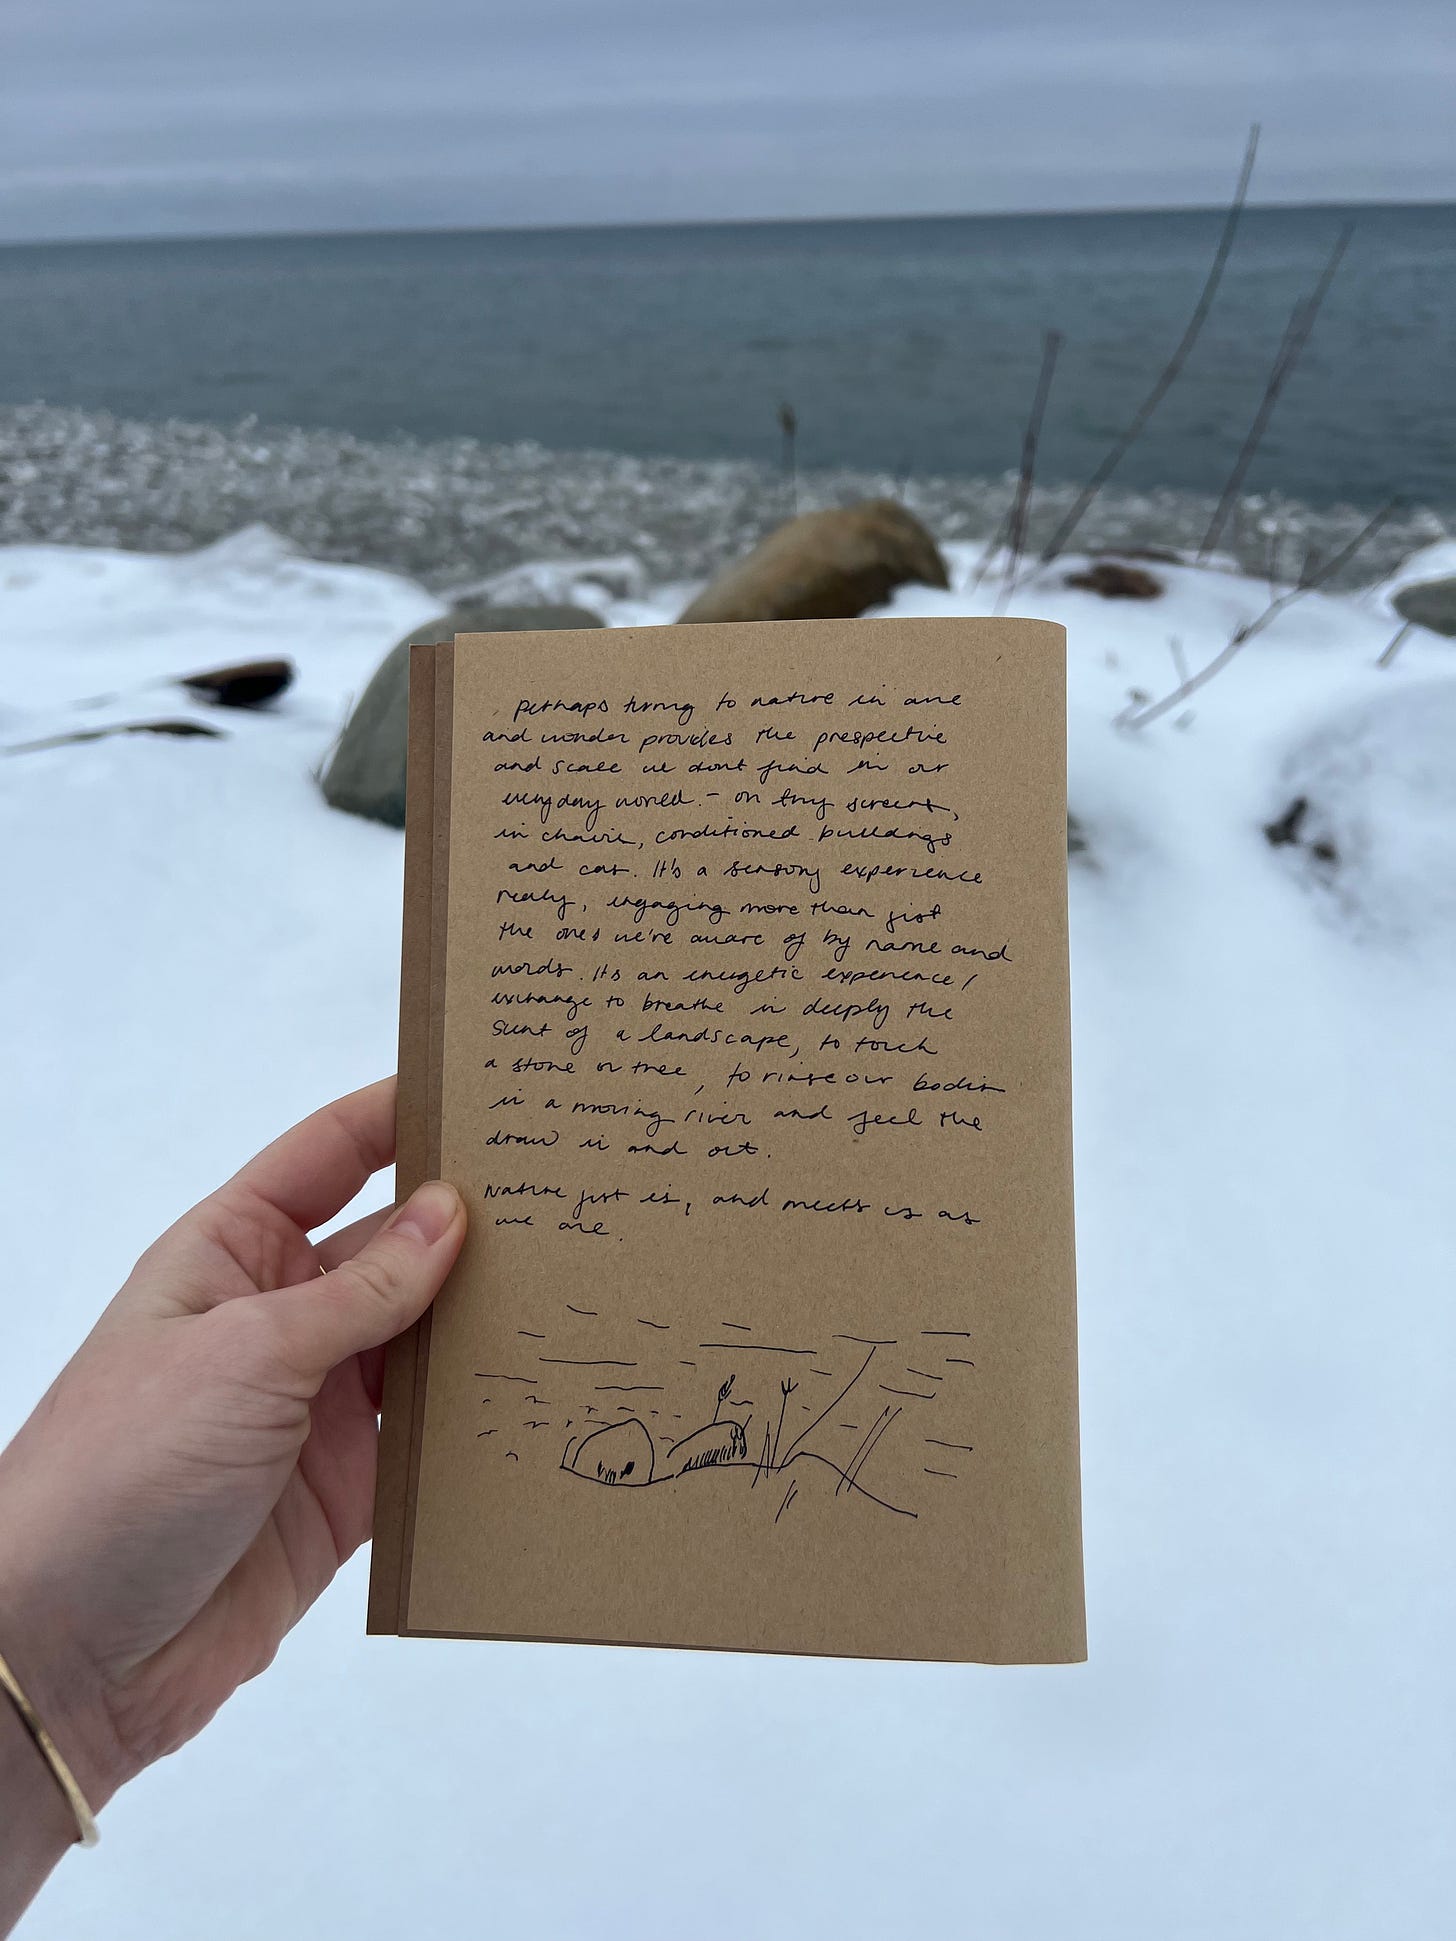 perhaps turning to nature in awe
and wonder provides the prespective
and scale we dont find in our
everyday world. – on tiny screens,
in chairs, conditioned buildings
and cars. It's a sensory experience
really, engaging more than just
the ones we're aware of by name and
words. Its an energetic experience /
exchange to breathe in deeply the
scent of a landscape, to touch
a stone or tree, to rinse our bodies
in a moving river and feel the
draw in and out.
Nature just is, and meets us as
we are.